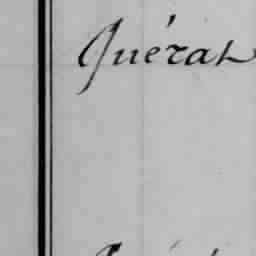 Quérat